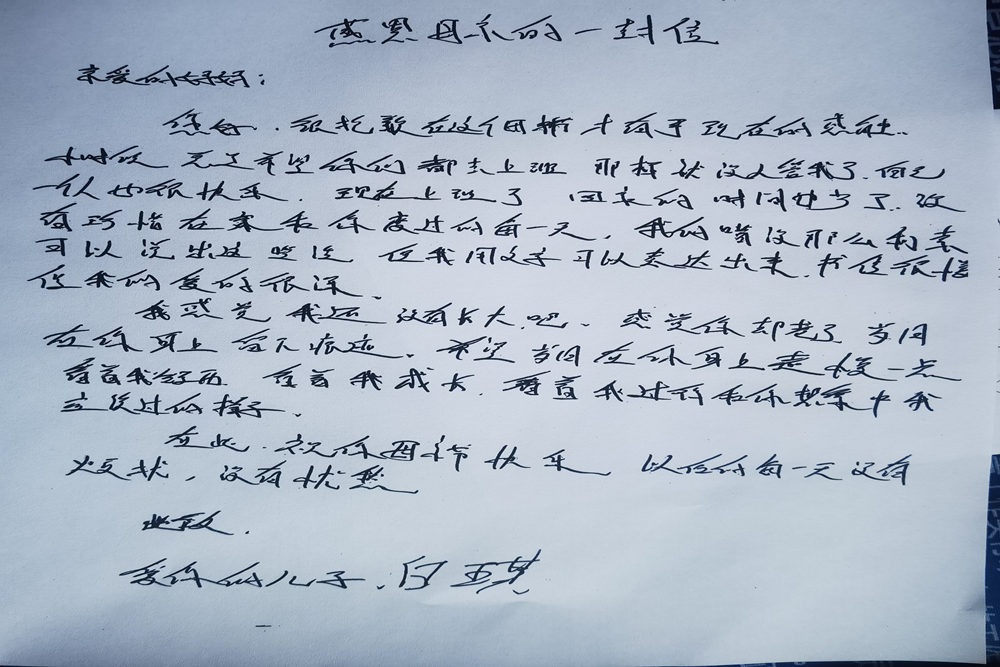 感恩母亲的一封信
亲爱的妈妈：
您好．很抱歉在这个母节才有了现在的感触．
小时候 总是希望你们都去上班 那样就没人管我了．自己
一个人也很快乐．现在上班了 回家的时间也少了．没
有珍惜在家和你度过的每一天．我的嘴没那么利索
可以说出这些话 但我用文字可以表达出来．书信很慢
但我的爱的很深．
我感觉我还没有长大吧．感觉你却老了 岁月
在你身上留下痕迹．希望岁月在你身上走慢一点
看着我经历 看着我成长．看着我过得和你想象中我
应该过的样子．
在此．祝你母亲节快乐 以后的每一天没有
烦恼，没有忧愁
此致．
爱你的儿子．白玉其